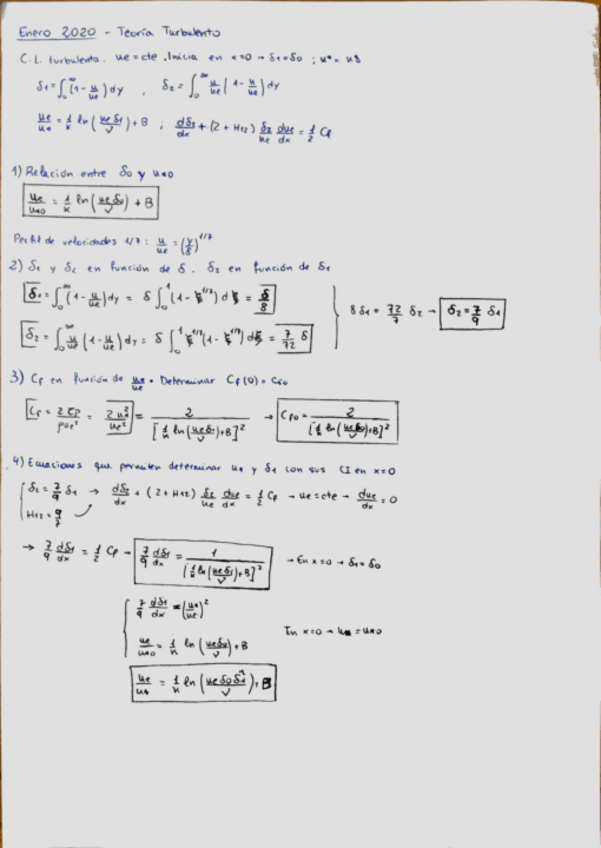 Enero 2020 - Teoría Turbulento
C.L. turbulenta. ue = cte. Inicia en x=0 → δ1=δ0 ; u*=
δ1 = ∫₀^∞ (1 - u/ue) dy , δ2 = ∫₀^∞ u/ue (1 - u/ue) dy
ue/u* = 1/k ln(ue δ1/ν) + B ; dδ2/dx + (2 + H12) δ2/ue due/dx = 1/2 Cf
1) Relación entre δ0 y u*0
ue/u*0 = 1/k ln(ue δ0/ν) + B
Perfil de velocidades 1/7 : u/ue = (y/δ)^1/7
2) δ1 y δ2 en función de δ. δ2 en función de δ1
δ1 = ∫₀^∞ (1 - u/ue) dy = δ ∫₀^1 (1 - ξ^1/7) dξ = δ/8
8 δ1 = 72/7 δ2 → δ2 = 7/9 δ1
δ2 = ∫₀^∞ u/ue (1 - u/ue) dy = δ ∫₀^1 ξ^1/7 (1 - ξ^1/7) dξ = 7/72 δ
3) Cf en función de u*/ue. Determinar Cf(0) = Cf0
Cf = 2 τp/ρue² = 2 u*²/ue² = 2/[1/k ln(ue δ1/ν) + B]² → Cf0 = 2/[1/k ln(ue δ0/ν) + B]²
4) Ecuaciones que permiten determinar u* y δ1 con sus CI en x=0
δ2 = 7/9 δ1 → dδ2/dx + (2 + H12) δ2/ue due/dx = 1/2 Cf → ue = cte → due/dx = 0
H12 = 9/7
→ 7/9 dδ1/dx = 1/2 Cf → 7/9 dδ1/dx = 1/[1/k ln(ue δ1/ν) + B]² → En x=0 → δ1 = δ0
7/9 dδ1/dx = (u*/ue)²
ue/u*0 = 1/k ln(ue δ0/ν) + B
En x=0 → u* = u*0
ue/u* = 1/k ln(ue δ0 δ1/ν) + B